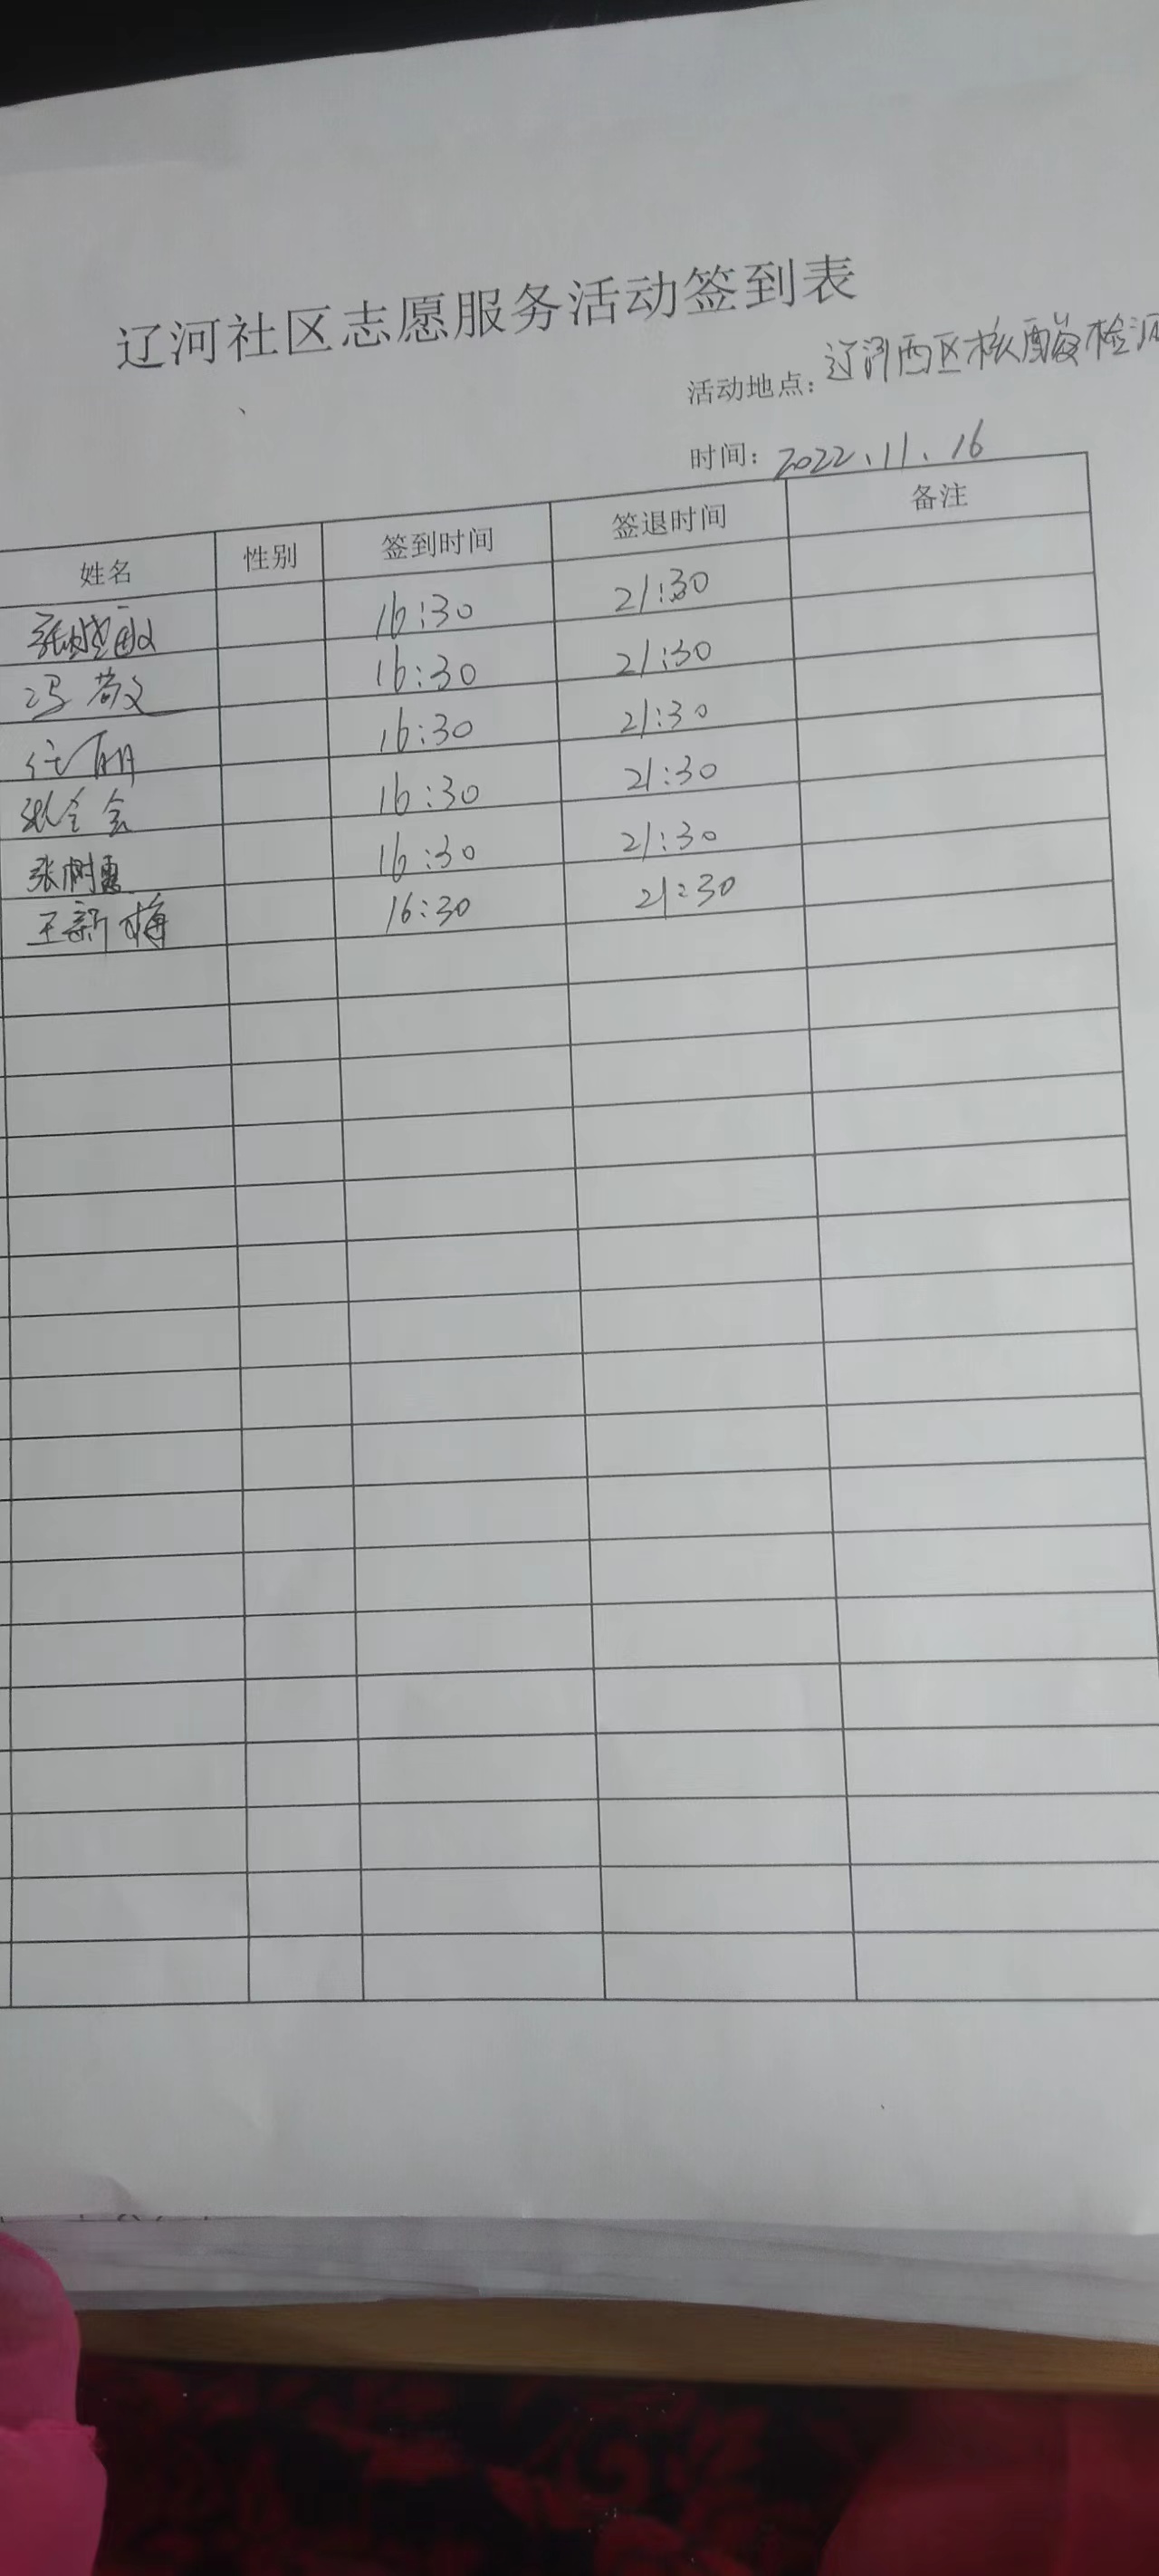 辽河社区志愿服务活动签到表
活动地点：辽河西区核酸检测
时间：2022.11.16
姓名 性别 签到时间 签退时间 备注
16:30 21:30
冯 16:30 21:30
任 16:30 21:30
16:30 21:30
张树 16:30 21:30
王新梅 16:30 21:30